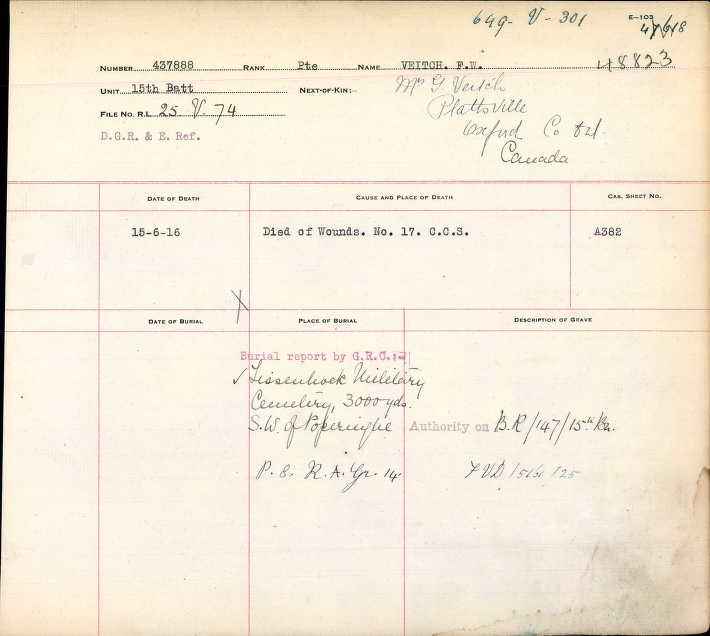 649-V-301
E-103
NUMBER 437888 RANK Pte NAME VEITCH. F.W. 48823
UNIT 15th Batt NEXT-OF-KIN:- Mrs G Veitch
FILE NO. R.L. 25. V. 74 Plattsville
D.G.R. & E. Ref. Oxford Co
Canada
DATE OF DEATH CAUSE AND PLACE OF DEATH CAS. SHEET NO.
15-6-16 Died of Wounds. No. 17. C.C.S. A382
X
DATE OF BURIAL PLACE OF BURIAL DESCRIPTION OF GRAVE
Burial report by G.R.C.:-
✓ Lissenhoek Military
Cemetery, 3000 yds.
S.W. of Poperinghe Authority on B.R/147/15th Ba.
P. 8. R. A. Gr. 14